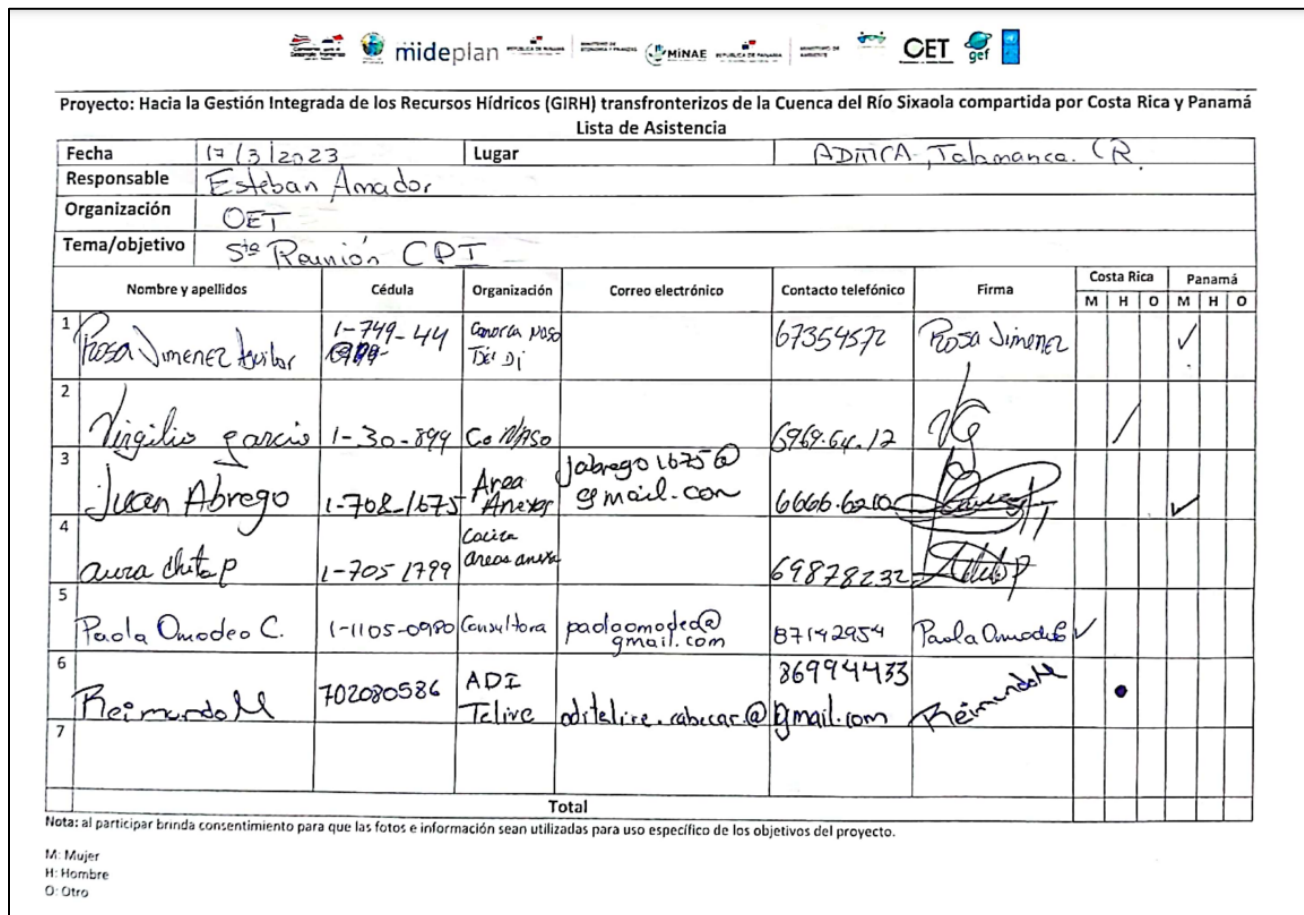 mideplan MiNAE OET gef
Proyecto: Hacia la Gestión Integrada de los Recursos Hídricos (GIRH) transfronterizos de la Cuenca del Río Sixaola compartida por Costa Rica y Panamá
Lista de Asistencia
Fecha 17/3/2023 Lugar Talamanca. CR.
Responsable Esteban Amador
Organización OET
Tema/objetivo 5ta Reunión CPI
Nombre y apellidos Cédula Organización Correo electrónico Contacto telefónico Firma Costa Rica Panamá
M H O M H O
1 Rosa Jimenez Aguilar 1-749-44 Naso 67354572 Rosa Jimenez ✓
2 Virgilio garcia 1-30-899 Co NASO 6969.64.12 VG /
3 Juan Abrego 1-708-1675 Area Anexas jabrego1675@
gmail.com 6666.6210 ✓
4 aura chita p 1-705 1799 areas anexa 69878232
5 Paola Omodeo C. 1-1105-0980 Consultora paolaomodeo@
gmail.com 87142954 Paola Omodeo ✓
6 ReimundoM 702080586 ADI
Telire aditelire.cabecar.@gmail.com 86994433 ReimundoM
7
Total
Nota: al participar brinda consentimiento para que las fotos e información sean utilizadas para uso específico de los objetivos del proyecto.
M: Mujer
H: Hombre
O: Otro